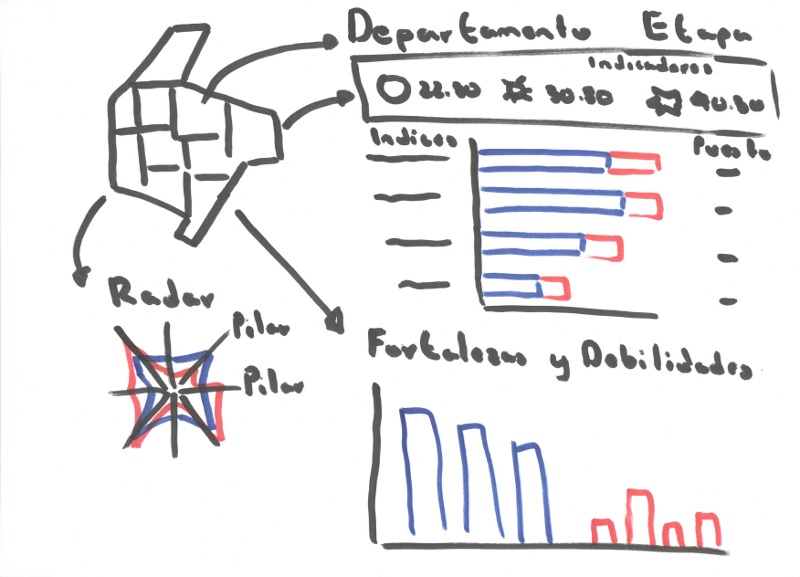 Departamento Etapa
Indicadores
22.30 30.80 40.30
Indices Puesto
Radar
Pilar
Pilar
Fortalezas y Debilidades